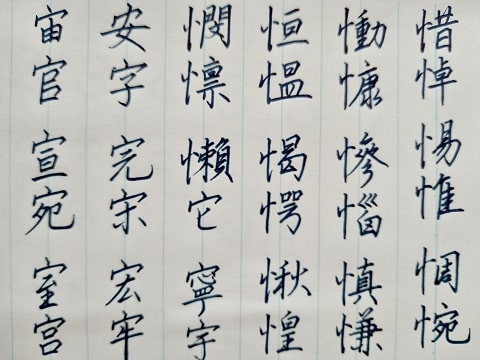 惜悼惕惟惆惋
慟慷慘惱慎慊
恒愠愒愕愀惶
憫懍懶它寧宇
安字完宋宏牢
宙官宣宛室宮